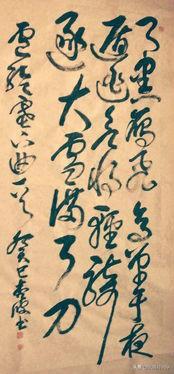 月黑雁飛高單于夜
遁逃欲將輕騎
逐大雪滿弓刀
盧綸塞下曲 癸巳 書